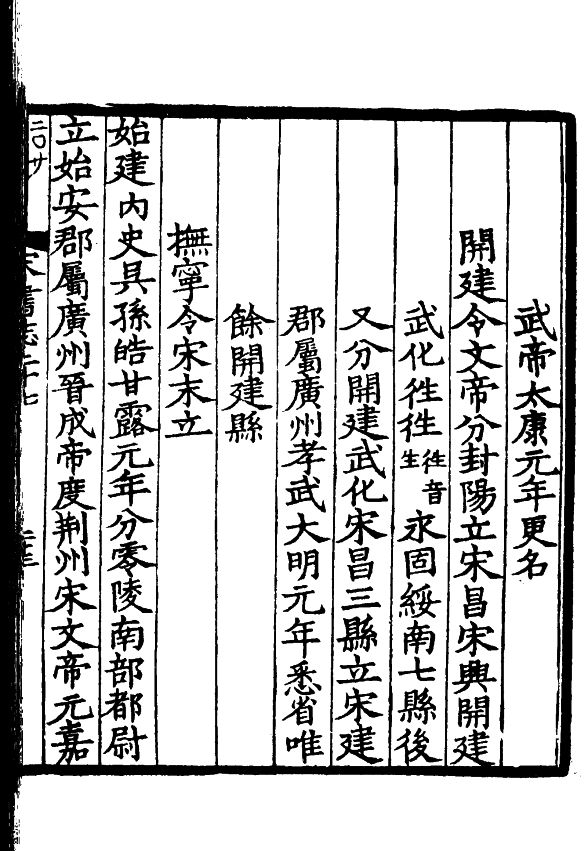 武帝太康元年更名
開建令文帝分封陽立宋昌宋興開建
武化徃徃徃音生永固綏南七縣後
又分開建武化宋昌三縣立宋建
郡屬廣州孝武大明元年悉省唯
餘開建縣
撫寧令宋末立
始建内史吳孫皓甘露元年分零陵南部都尉
立始安郡屬廣州晉成帝度荆州宋文帝元嘉
宋書志二十七